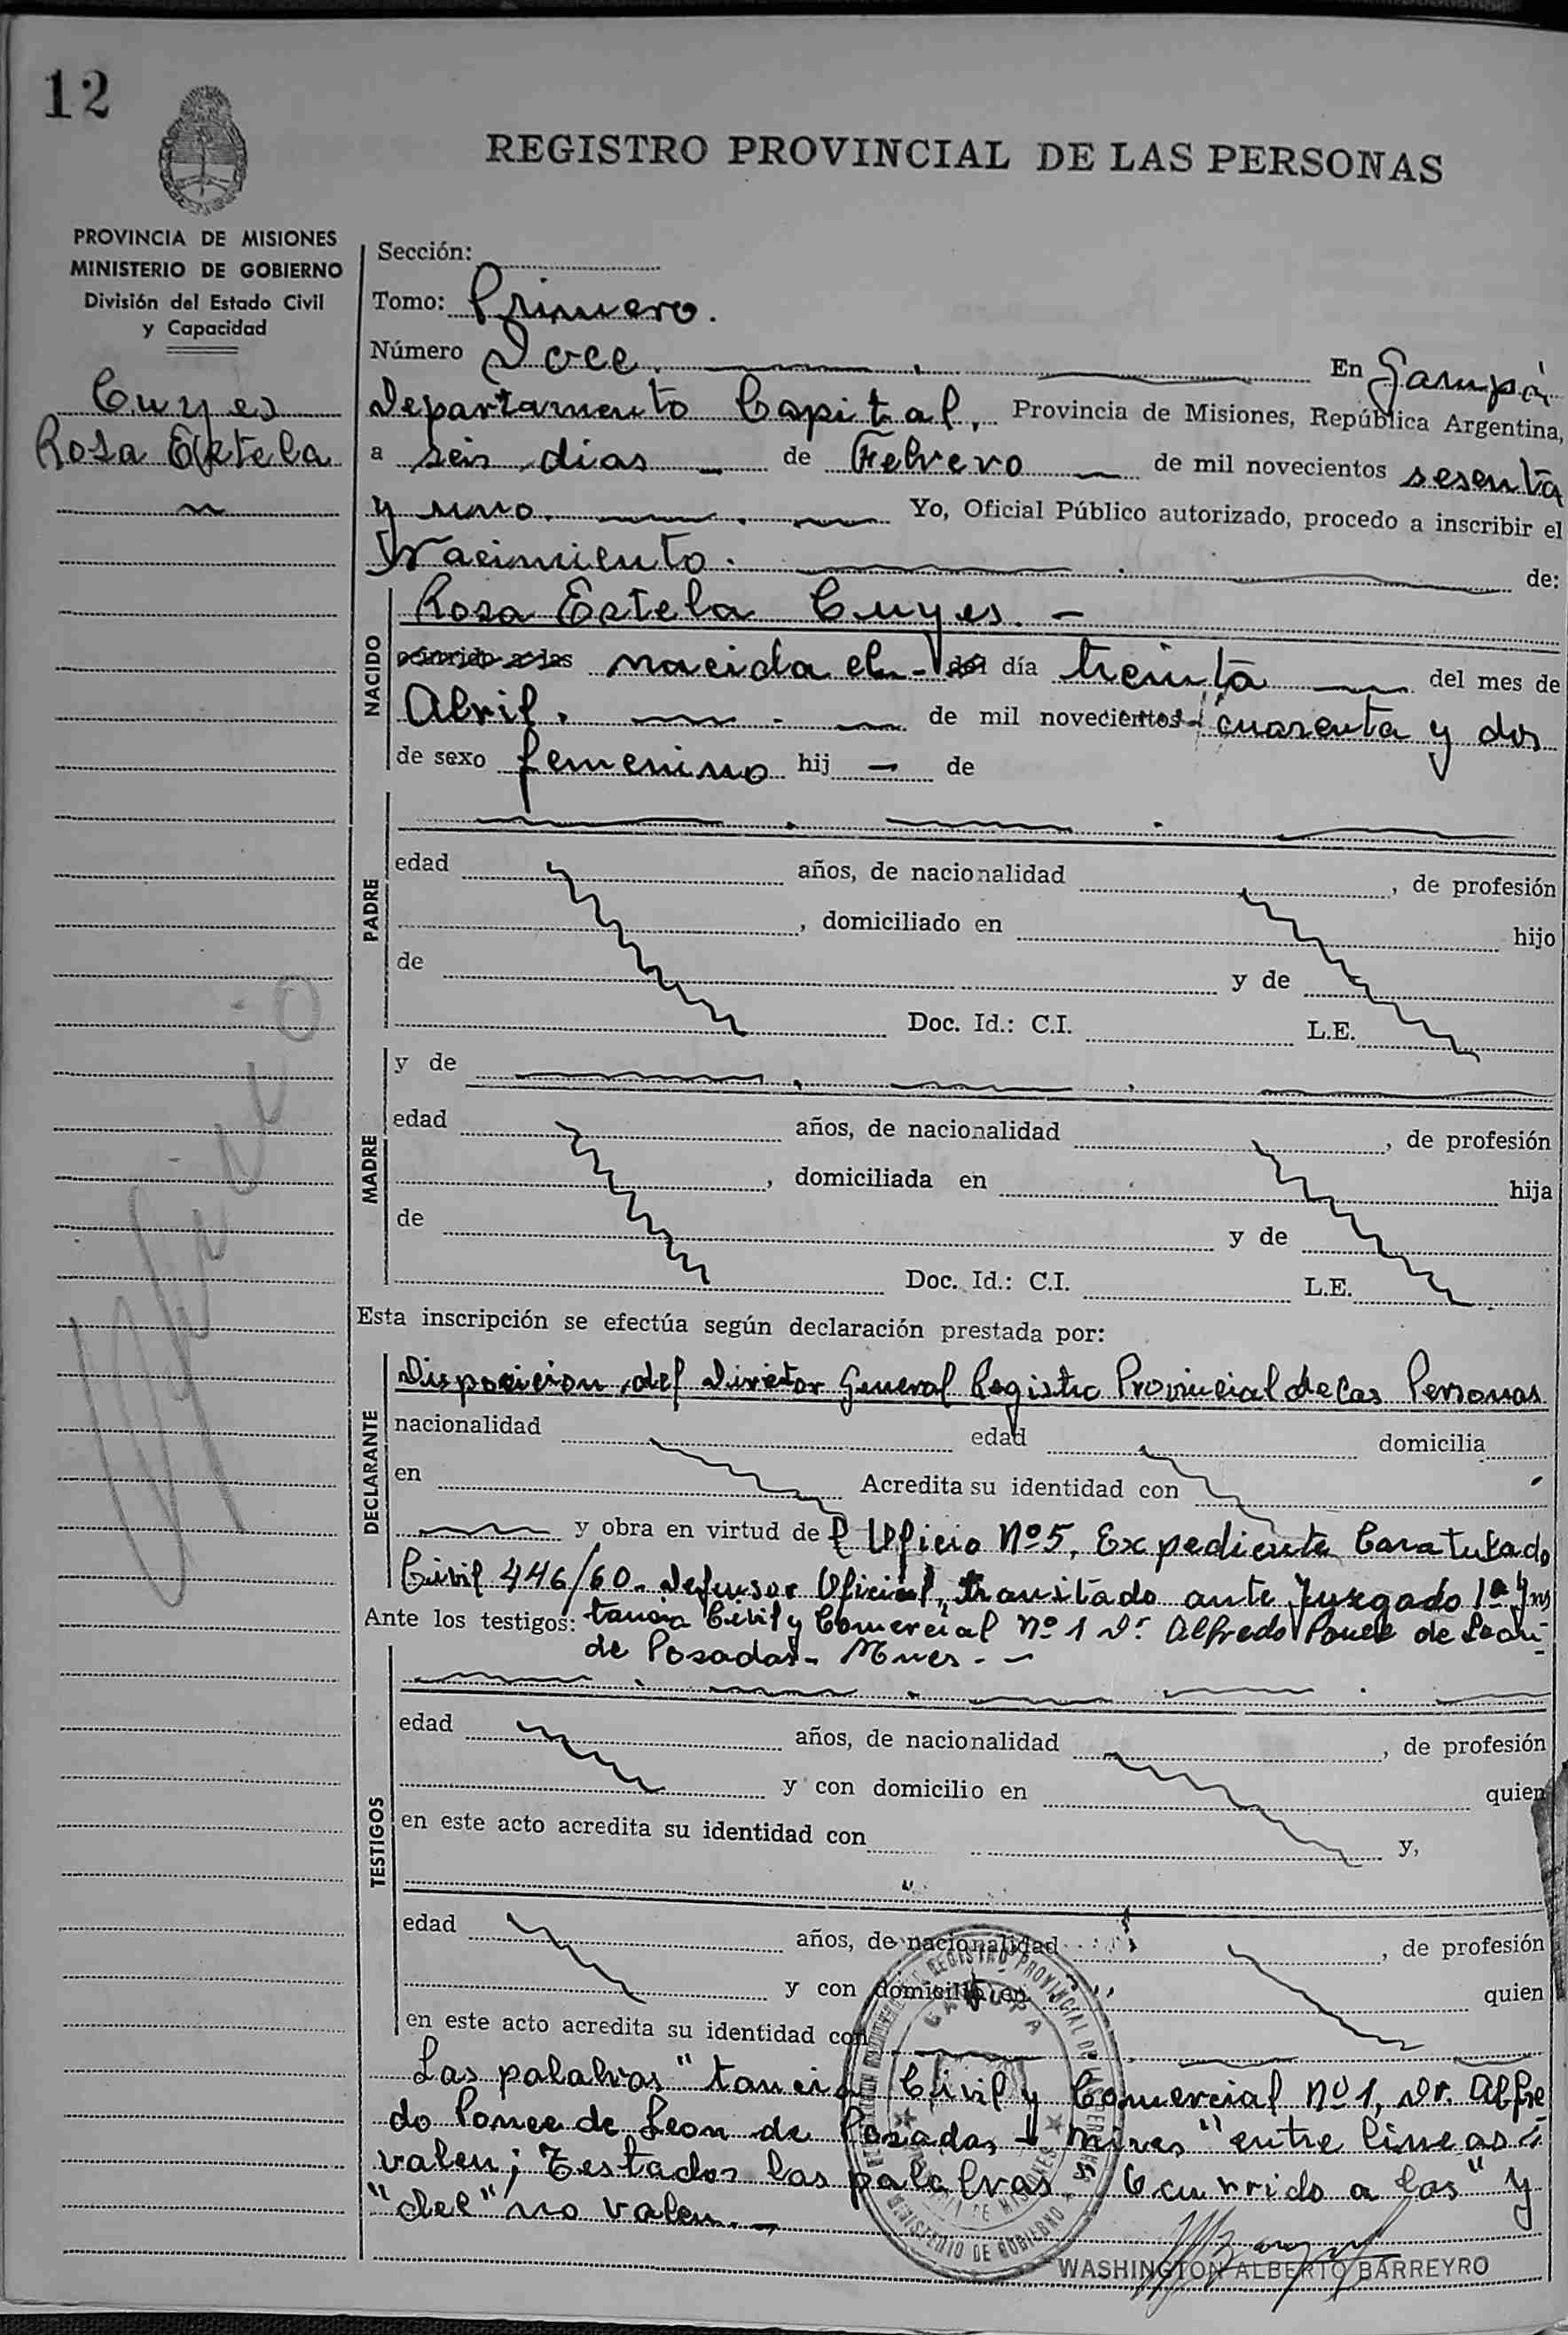 12
REGISTRO PROVINCIAL DE LAS PERSONAS
PROVINCIA DE MISIONES
MINISTERIO DE GOBIERNO
División del Estado Civil
y Capacidad
Cuyes
Rosa Estela
Sección:
Tomo: Primero.
Número Doce. En Garupá
Departamento Capital, Provincia de Misiones, República Argentina,
a seis dias de Febrero de mil novecientos sesenta
y uno. Yo, Oficial Público autorizado, procedo a inscribir el
Nacimiento. de:
NACIDO
Rosa Estela Cuyes. -
ocurrido a las nacida el - del día treinta del mes de
Abril. de mil novecientos cuarenta y dos
de sexo femenino hij - de
PADRE
edad años, de nacionalidad , de profesión
, domiciliado en hijo
de y de
Doc. Id.: C.I. L.E.
MADRE
y de
edad años, de nacionalidad , de profesión
, domiciliada en hija
de y de
Doc. Id.: C.I. L.E.
Esta inscripción se efectúa según declaración prestada por:
DECLARANTE
Disposicion del Director General Registro Provincial de las Personas
nacionalidad edad domicilia
en Acredita su identidad con
y obra en virtud de l Oficio Nº 5, Expediente Caratulado
Civil 446/60. Defensor Oficial, tramitado ante Juzgado 1ª Ins
Ante los testigos: tancia Civil y Comercial Nº 1 Dr. Alfredo Ponce de Leon
de Posadas - Mnes. -
TESTIGOS
edad años, de nacionalidad , de profesión
y con domicilio en quien
en este acto acredita su identidad con y,
edad años, de nacionalidad , de profesión
y con domicilio en quien
en este acto acredita su identidad con
Las palabras "tancia Civil y Comercial Nº 1, Dr. Alfre
do Ponce de Leon de Posadas - Mnes" entre lineas
valen; Testados las palabras "Ocurrido a las" y
"del" no valen. -
REGISTRO PROVINCIAL DE LAS PERSONAS
GARUPA
MINISTERIO DE GOBIERNO
WASHINGTON ALBERTO BARREYRO